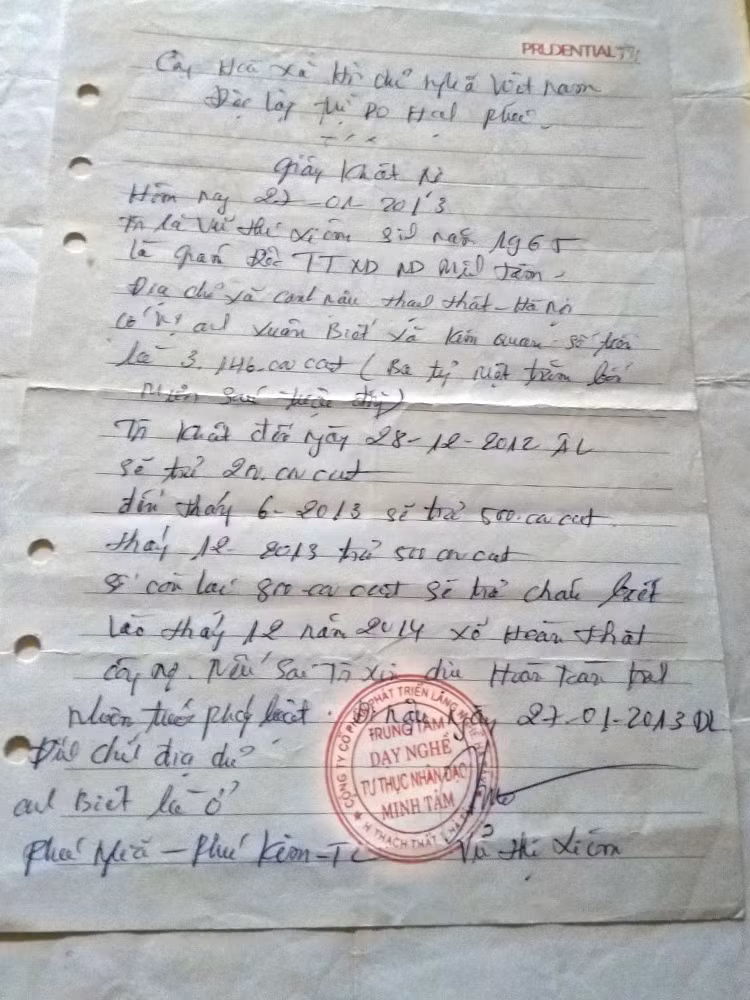 PRUDENTIAL
Cộng Hòa xã Hội chủ nghĩa Việt nam
Độc lập tự Do Hạnh phúc
Giấy khất Nợ
Hôm nay 27-01 2013
Tôi là Vũ thị xiêm sinh năm 1965
là giám Đốc TT ND Minh tâm
Địa chỉ xã canh nậu thạch thất - Hà Nội
có nợ anh Xuân Biết xã Kim quan số tiền
là 3.146.
(Ba tỷ một trăm bốn
mươi sáu triệu
Tôi khất đến ngày 28-12-2012 ÂL
sẽ trả
đến tháng 6-2013 sẽ trả 500.
tháng 12-2013 trả 500
số còn lại 800 sẽ trả
vào tháng 12 năm 2014 Hoàn thất
công nợ. Nếu sai Tôi xin chịu Hoàn toàn trách
nhiệm trước pháp luật. ngày 27-01-2013 DL
địa
anh Biết là ở
Phú Nghĩa - Phú Kim - TT
Vũ thị xiêm
TRUNG TÂM
DẠY NGHỀ
TƯ THỤC NHÂN ĐẠO
MINH TÂM
H. THẠCH THẤT
CÔNG TY CỔ PHẦN PHÁT TRIỂN LÀNG NGHỀ